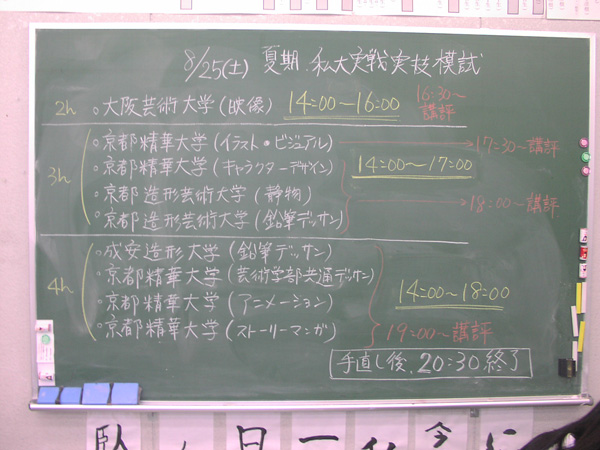 8/25(土) 夏期 私大実戦実技模試
2h 。大阪芸術大学(映像) 14:00～16:00 16:30～講評
。京都精華大学(イラスト・ビジュアル) 17:30～講評
3h 。京都精華大学(キャラクターデザイン) 14:00～17:00
。京都造形芸術大学(静物) 18:00～講評
。京都造形芸術大学(鉛筆デッサン)
。成安造形大学(鉛筆デッサン)
。京都精華大学(芸術学部共通デッサン)
4h 。京都精華大学(アニメーション) 14:00～18:00
。京都精華大学(ストーリーマンガ) 19:00～講評
手直し後、20:30終了